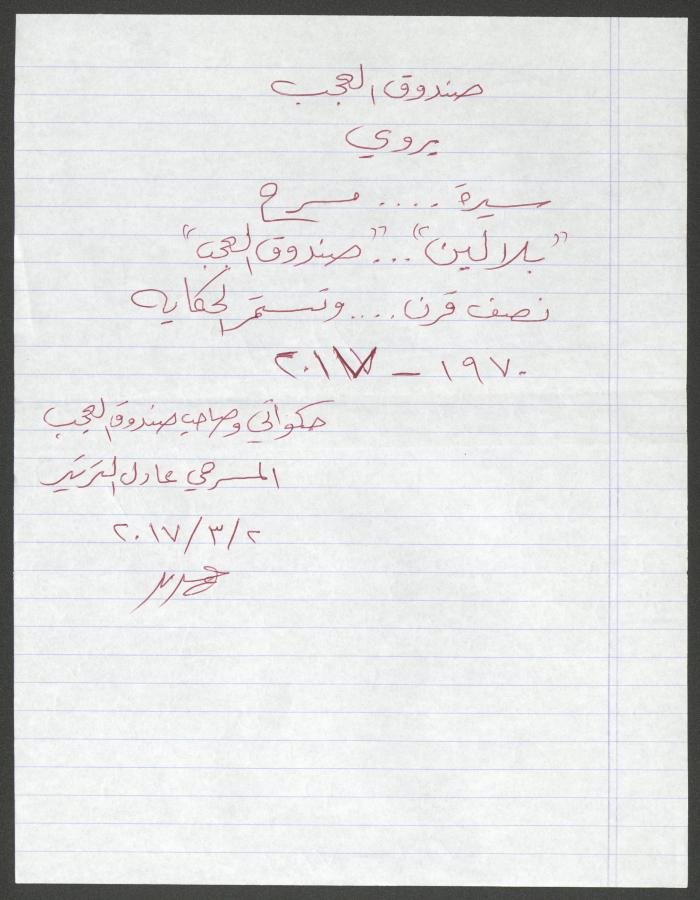 صندوق العجب
يروي
سيرة .... مسرح
"بلالين" ... "صندوق العجب"
نصف قرن .... وتستمر الحكايه
١٩٧٠ – ٢٠١٧
حكواتي وصاحب صندوق العجب
المسرحي عادل الترتير
٢٠١٧/٣/٢